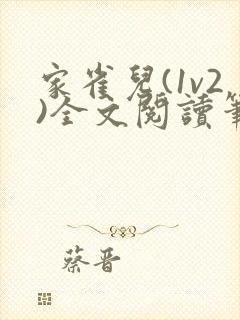 家雀兒(1v2
)全文閱讀筆
蔡晋